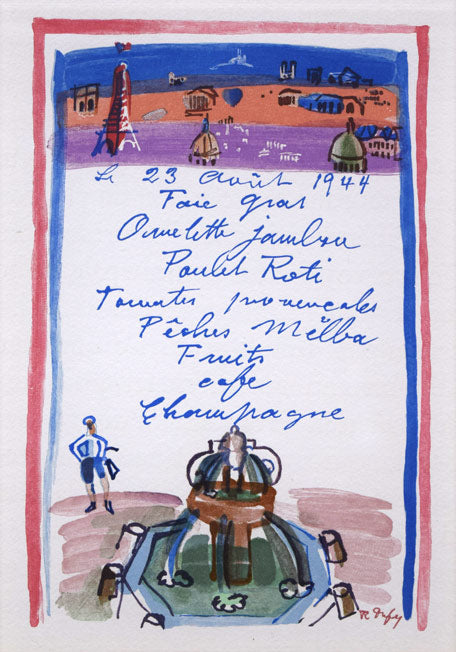 Le 23 Août 1944
Foie gras
Omelette jambon
Poulet Roti
Tomates provençales
Pêches Melba
Fruits
café
Champagne
R Dufy